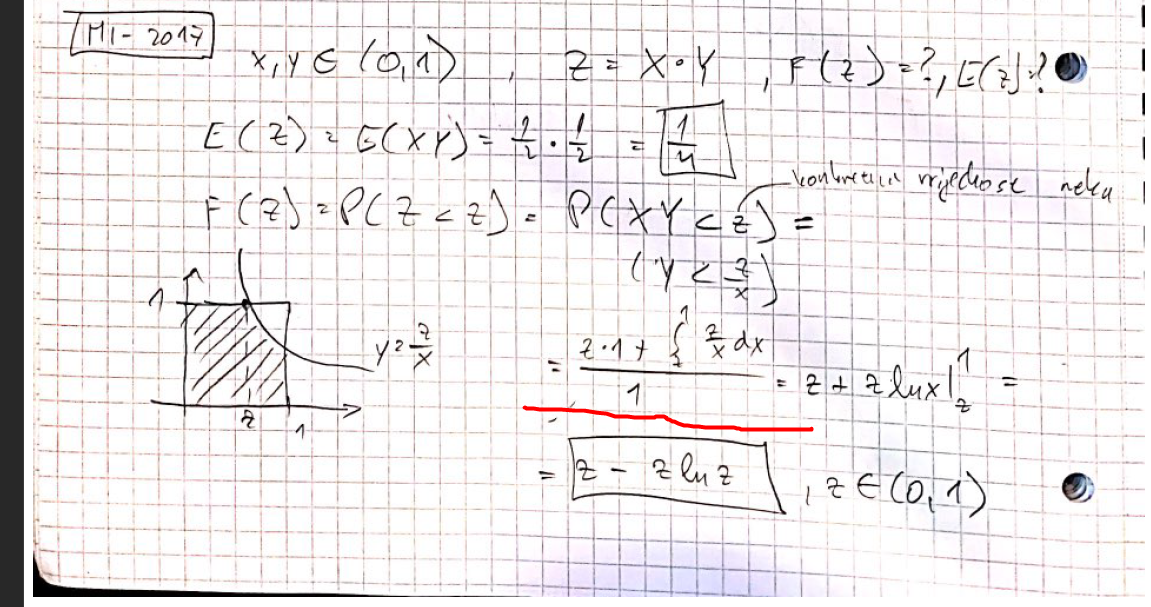 MI - 2017
X, Y ∈ (0,1) , Z = X·Y , F(z) = ?, E(z) = ?
E(Z) = E(XY) = 1/2 · 1/2 = 1/4
konkretna vrijednost neka
F(Z) = P(Z < z) = P(XY < z) =
(Y < z/x)
1
y = z/x
z 1
= (z·1 + ∫_z^1 z/x dx) / 1 = z + z ln x |_z^1 =
= z - z ln z , z ∈ (0,1)